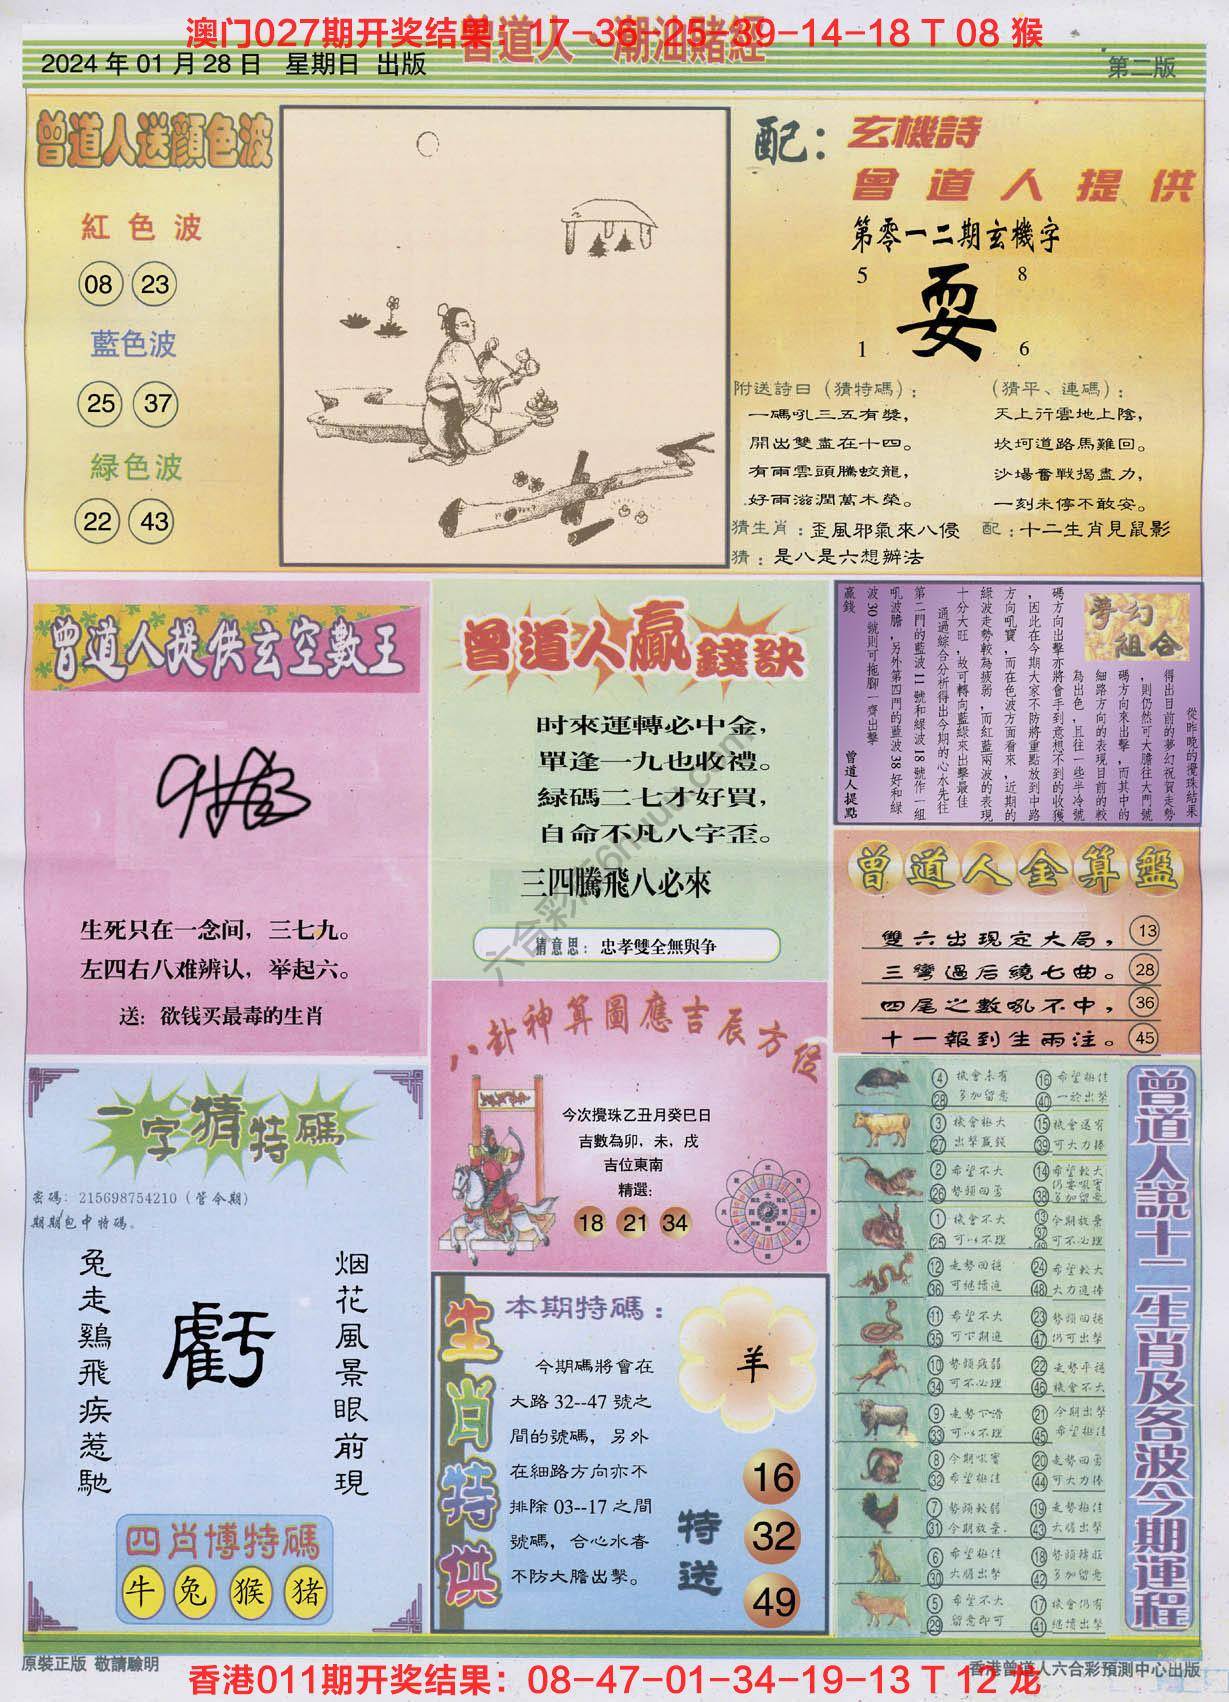 澳门027期开奖结果：17-36-25-39-14-18 T 08 猴
曾道人·潮汕賭經
2024 年 01 月 28 日 星期日 出版
第二版
曾道人送顔色波
紅色波
08 23
藍色波
25 37
緑色波
22 43
配：玄機詩
曾道人提供
第零一二期玄機字
5 8
耍
1 6
附送詩曰（猜特碼）：
一碼吼三五有獎，
開出雙盡在十四。
有雨雲頭騰蛟龍，
好雨滋潤萬木榮。
（猜平、連碼）：
天上行雲地上陰，
坎坷道路馬難回。
沙場奮戰揭盡力，
一刻未停不敢安。
猜生肖：歪風邪氣來八侵 配：十二生肖見鼠影
猜：是八是六想辦法
曾道人提供玄空數王
生死只在一念间，三七九。
左四右八难辨认，举起六。
送：欲钱买最毒的生肖
曾道人贏錢訣
时來運轉必中金，
單逢一九也收禮。
緑碼二七才好買，
自命不凡八字歪。
三四騰飛八必來
猜意思：忠孝雙全無與争
夢幻組合
從昨晚的攪珠結果
得出目前的夢幻祝賀走勢
，則仍然可大膽往大門號
碼方向來出擊，而其中的
細路方向的表現目前的較
為出色，且往一些半冷號
碼方向出擊亦將會手到意想不到的收獲
，因此在今期大家不防將重點放到中路
方向吼寶，而在色波方面看來，近期的
綠波走勢較為疲弱，而紅藍兩波的表現
十分大旺，故可轉向藍綠來出擊最佳
通過綜合分析得出今期的心水先往
第二門的藍波 11 號和綠波 18 號作一組
吼波膽，另外第四門的藍波 38 好和綠
波 30 號則可拖腳一齊出擊
贏錢
曾道人提點
曾道人金算盤
雙六出現定大局， 13
三彎過后繞七曲。 28
四尾之數吼不中， 36
十一報到生雨注。 45
八卦神算圖應吉辰方位
今次攪珠乙丑月癸巳日
吉數為卯，未，戌
吉位東南
精選：
18 21 34
一字猜特碼
密碼：215698754210（管今期）
期期包中特碼。
兔走鷄飛疾惹馳
虧
烟花風景眼前現
四肖博特碼
牛 兔 猴 猪
生肖特供
本期特碼：
羊
今期碼將會在
大路 32--47 號之
間的號碼，另外
在細路方向亦不
排除 03--17 之間
號碼，合心水者
不防大膽出擊。
特送
16
32
49
曾道人説十二生肖及各波今期運程
4 機會未有 16 希望極佳
28 多加留意 40 一於出擊
3 機會極大 15 機會還有
27 出擊贏錢 39 可大力捧
2 希望不大 14 希望較大
26 勢頭回勇 38 仍要吼實多加留意
1 機會不大 13 今期放棄
25 可以不理 37 49 可不必理
12 走勢回穩 24 希望較大
36 可繼續追 48 大力追捧
11 希望不大 23 勢頭回穩
35 可下期追 47 仍可出擊
10 勢頭疲弱 22 走勢平穩
34 可不必理 46 機會不大
9 走勢下滑 21 今期出擊
33 可以不理 45 希望極佳
8 今期吼實 20 走勢回勇
32 希望極佳 44 可大力捧
7 勢頭較弱 19 走勢極佳
31 今期放棄. 43 大膽出擊
6 希望極佳 18 勢頭特旺
30 大膽出擊 42 多加留意
5 希望不大 17 機會仍有
29 留意即可 41 繼續出擊
六合彩76huu.com
原裝正版 敬請驗明
香港011期开奖结果：08-47-01-34-19-13 T 12 龙
香港曾道人六合彩預測中心出版